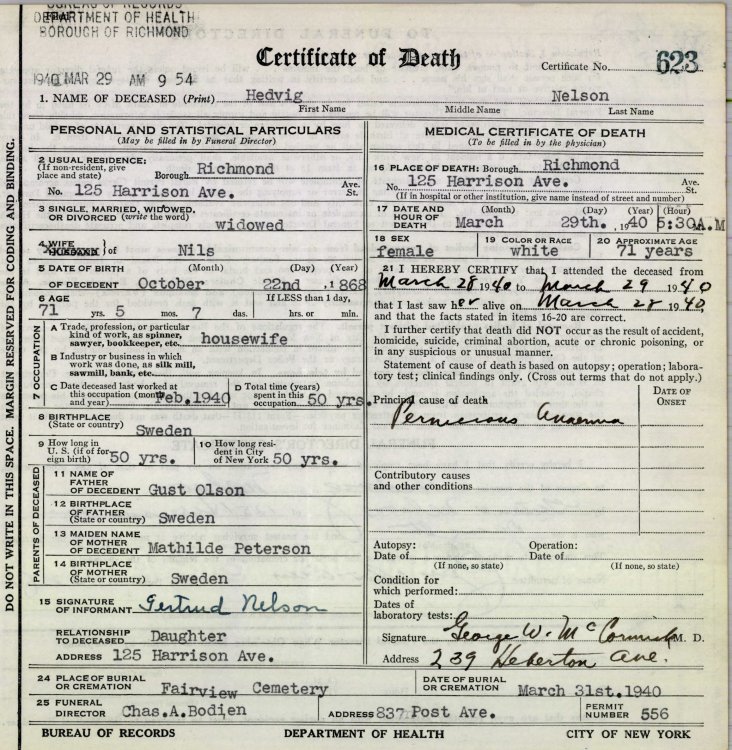 BUREAU OF RECORDS
DEPARTMENT OF HEALTH
BOROUGH OF RICHMOND
Certificate of Death
Certificate No. 623
1940 MAR 29 AM 9 54
1. NAME OF DECEASED (Print) Hedvig Nelson
First Name Middle Name Last Name
PERSONAL AND STATISTICAL PARTICULARS
(May be filled in by Funeral Director)
2 USUAL RESIDENCE:
(If non-resident, give
place and state) Borough Richmond
No. 125 Harrison Ave. Ave. St.
3 SINGLE, MARRIED, WIDOWED,
OR DIVORCED (write the word)
widowed
4 WIFE
HUSBAND of Nils
5 DATE OF BIRTH (Month) (Day) (Year)
OF DECEDENT October 22nd, 1868
6 AGE If LESS than 1 day,
71 yrs. 5 mos. 7 das. hrs. or min.
7 OCCUPATION
A Trade, profession, or particular
kind of work, as spinner,
sawyer, bookkeeper, etc. housewife
B Industry or business in which
work was done, as silk mill,
sawmill, bank, etc.
C Date deceased last worked at
this occupation (month
and year) Feb. 1940
D Total time (years)
spent in this
occupation 50 yrs.
8 BIRTHPLACE
(State or country) Sweden
9 How long in
U. S. (if of for-
eign birth) 50 yrs.
10 How long resi-
dent in City
of New York 50 yrs.
PARENTS OF DECEASED
11 NAME OF
FATHER
OF DECEDENT Gust Olson
12 BIRTHPLACE
OF FATHER
(State or country) Sweden
13 MAIDEN NAME
OF MOTHER
OF DECEDENT Mathilde Peterson
14 BIRTHPLACE
OF MOTHER
(State or country) Sweden
15 SIGNATURE
OF INFORMANT Gertrud Nelson
RELATIONSHIP
TO DECEASED Daughter
ADDRESS 125 Harrison Ave.
MEDICAL CERTIFICATE OF DEATH
(To be filled in by the physician)
16 PLACE OF DEATH: Borough Richmond
No. 125 Harrison Ave. Ave. St.
(If in hospital or other institution, give name instead of street and number)
17 DATE AND
HOUR OF
DEATH (Month) (Day) (Year) (Hour)
March 29th. , 1940 5:30A.M
18 SEX
female
19 COLOR OR RACE
white
20 APPROXIMATE AGE
71 years
21 I HEREBY CERTIFY that I attended the deceased from
March 28 1940 to March 29 1940
that I last saw her alive on March 28 1940,
and that the facts stated in items 16-20 are correct.
I further certify that death did NOT occur as the result of accident,
homicide, suicide, criminal abortion, acute or chronic poisoning, or
in any suspicious or unusual manner.
Statement of cause of death is based on autopsy; operation; labora-
tory test; clinical findings only. (Cross out terms that do not apply.)
Principal cause of death
DATE OF
ONSET
Pernicious Anaemia
Contributory causes
and other conditions
Autopsy: Operation:
Date of Date of
(If none, so state) (If none, so state)
Condition for
which performed:
Dates of
laboratory tests:
Signature George W. McCormick M. D.
Address 239 Heberton Ave.
24 PLACE OF BURIAL
OR CREMATION Fairview Cemetery
DATE OF BURIAL
OR CREMATION March 31st.1940
25 FUNERAL
DIRECTOR Chas.A.Bodien
ADDRESS 837 Post Ave.
PERMIT
NUMBER 556
BUREAU OF RECORDS DEPARTMENT OF HEALTH CITY OF NEW YORK
DO NOT WRITE IN THIS SPACE. MARGIN RESERVED FOR CODING AND BINDING.